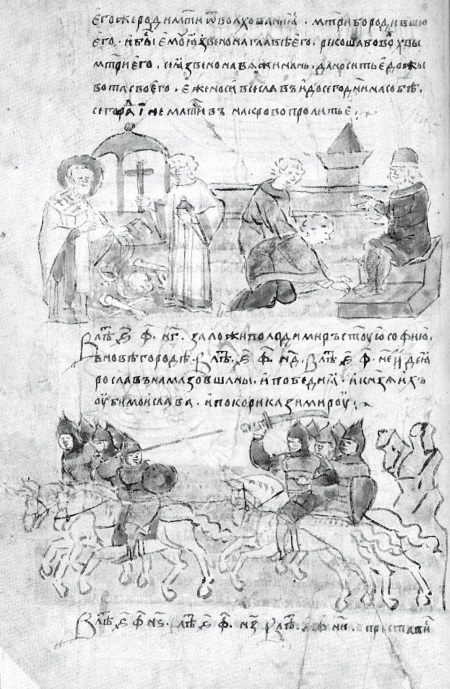 его же роди мт҃и ѿ волхованиꙗ · мт҃ри бо родивши
его · и бы҃ емоу ꙗзвено на главѣ его · рекоша бо волхвы
мт҃ри его · се ꙗзвено навѧжи на нь · да носить е до жи
вота своего · еже носи всеславъ и до сего дн҃и на собѣ ·
сего ра и не мл҃тивъ на кровопролитье ·
В лѣт҃ ҂ѕ҃ ф҃ н҃г · заложи володимиръ ст҃оую софию
в новѣгородѣ · В лѣт҃ · ҂ѕ҃ ф҃ н҃д · В лѣт҃ ҂ѕ҃ ф҃ н҃е иде ꙗ
рославъ на мазовшаны · и победи ꙗ · и кнѧзѧ ихъ
оуби моислава · и покори казимироу
В лѣт҃ ҂ѕ҃ ф҃ н҃ѕ · В лѣт҃ ҂ѕ҃ ф҃ н҃з В лѣт҃ · ҂ѕ҃ ф҃ н҃и · престави